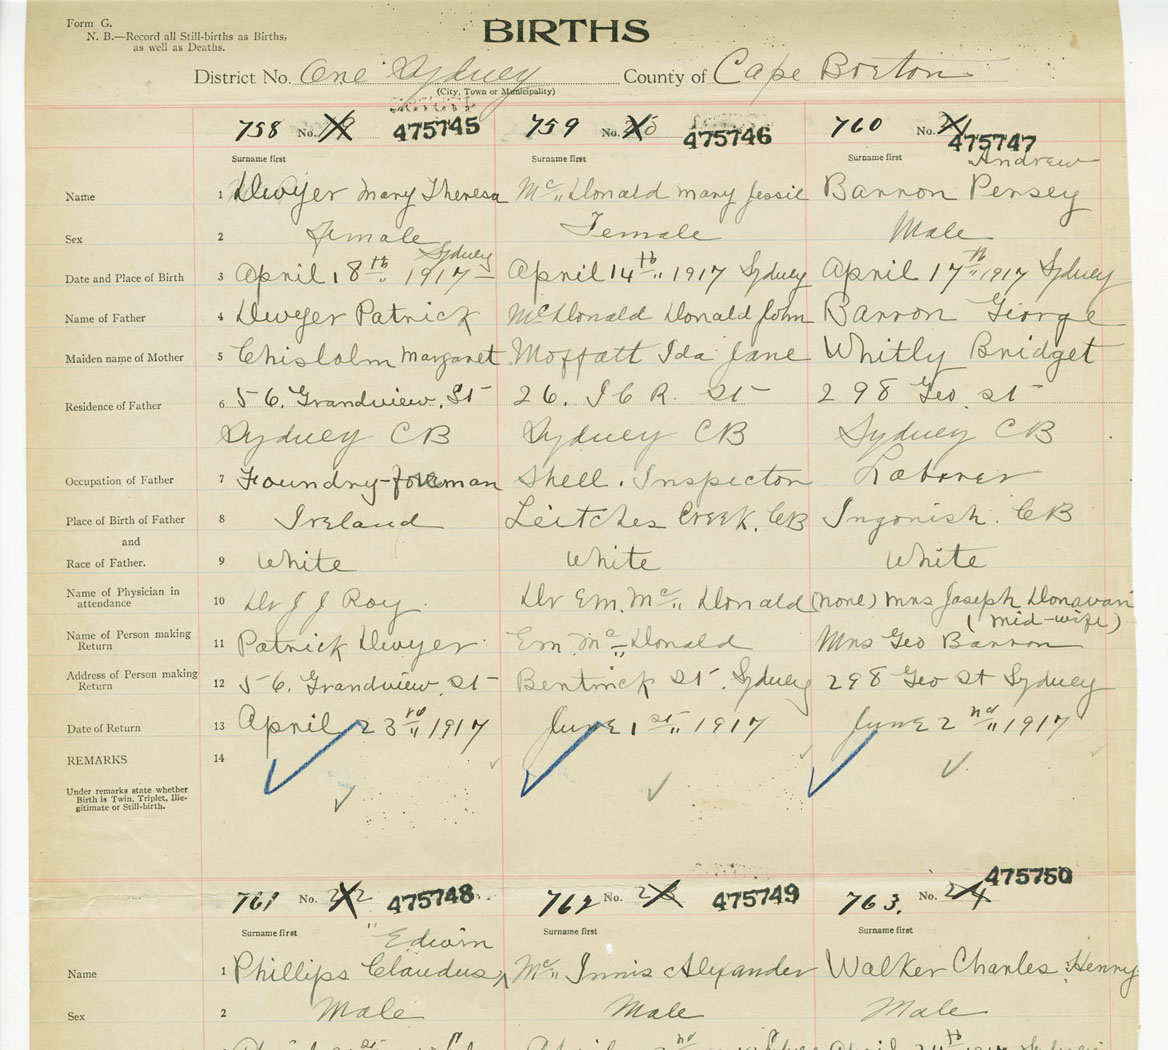 Form G.
N. B.—Record all Still-births as Births,
as well as Deaths.
BIRTHS
District No. One Sydney County of Cape Breton
(City, Town or Municipality)
758 No. 475745 759 No. 475746 760 No. 475747
Surname first Surname first Surname first
Andrew
Name 1 Dwyer Mary Theresa Mc Donald Mary Jessie Barron Persey
Sex 2 Female Female Male
Sydney
Date and Place of Birth 3 April 18th 1917 April 14th 1917 Sydney April 17th 1917 Sydney
Name of Father 4 Dwyer Patrick McDonald Donald John Barron George
Maiden name of Mother 5 Chisholm Margaret Moffatt Ida Jane Whitly Bridget
Residence of Father 6 56. Grandview. St 26. I C R. St 298 Geo st
Sydney CB Sydney CB Sydney CB
Occupation of Father 7 Foundry-foreman Shell. Inspector Laborer
Place of Birth of Father 8 Ireland Leitches Creek. CB Ingonish. CB
and
Race of Father. 9 White White White
Name of Physician in
attendance 10 Dr J J Roy. Dr Em. Mc Donald (none) Mrs Joseph Donavan
(mid-wife)
Name of Person making
Return 11 Patrick Dwyer Em Mc Donald Mrs Geo Barron
Address of Person making
Return 12 56. Grandview. St Bentinck St. Sydney 298 Geo St Sydney
Date of Return 13 April 23rd 1917 June 1st 1917 June 2nd 1917
REMARKS 14
Under remarks state whether
Birth is Twin, Triplet, Ille-
gitimate or Still-birth.
761 No. 22 475748 762 No. 23 475749 763. No. 24 475750
Surname first Surname first Surname first
Edwin
Name 1 Phillips Claudus Mc Innis Alexander Walker Charles Henry
Sex 2 Male Male Male